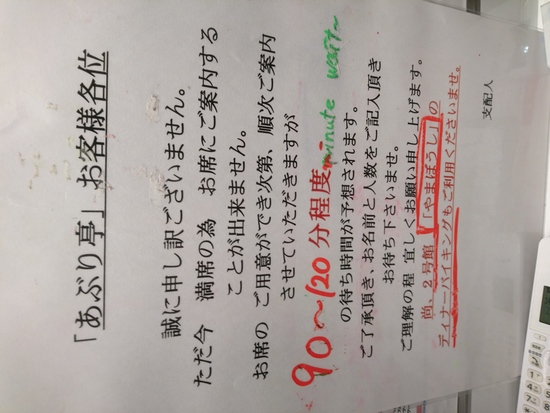 「あぶり亭」お客様各位
誠に申し訳ございません。
ただ今 満席の為 お席にご案内する
ことが出来ません。
お席の ご用意ができ次第、順次ご案内
させていただきますが
90〜120分程度 minute wait~
の待ち時間が予想されます。
ご了承頂き、お名前と人数をご記入頂き
お待ち下さいませ。
ご理解の程 宜しくお願い申し上げます。
尚、2号館「やまぼうし」の
ディナーバイキングもご利用くださいませ。
支配人